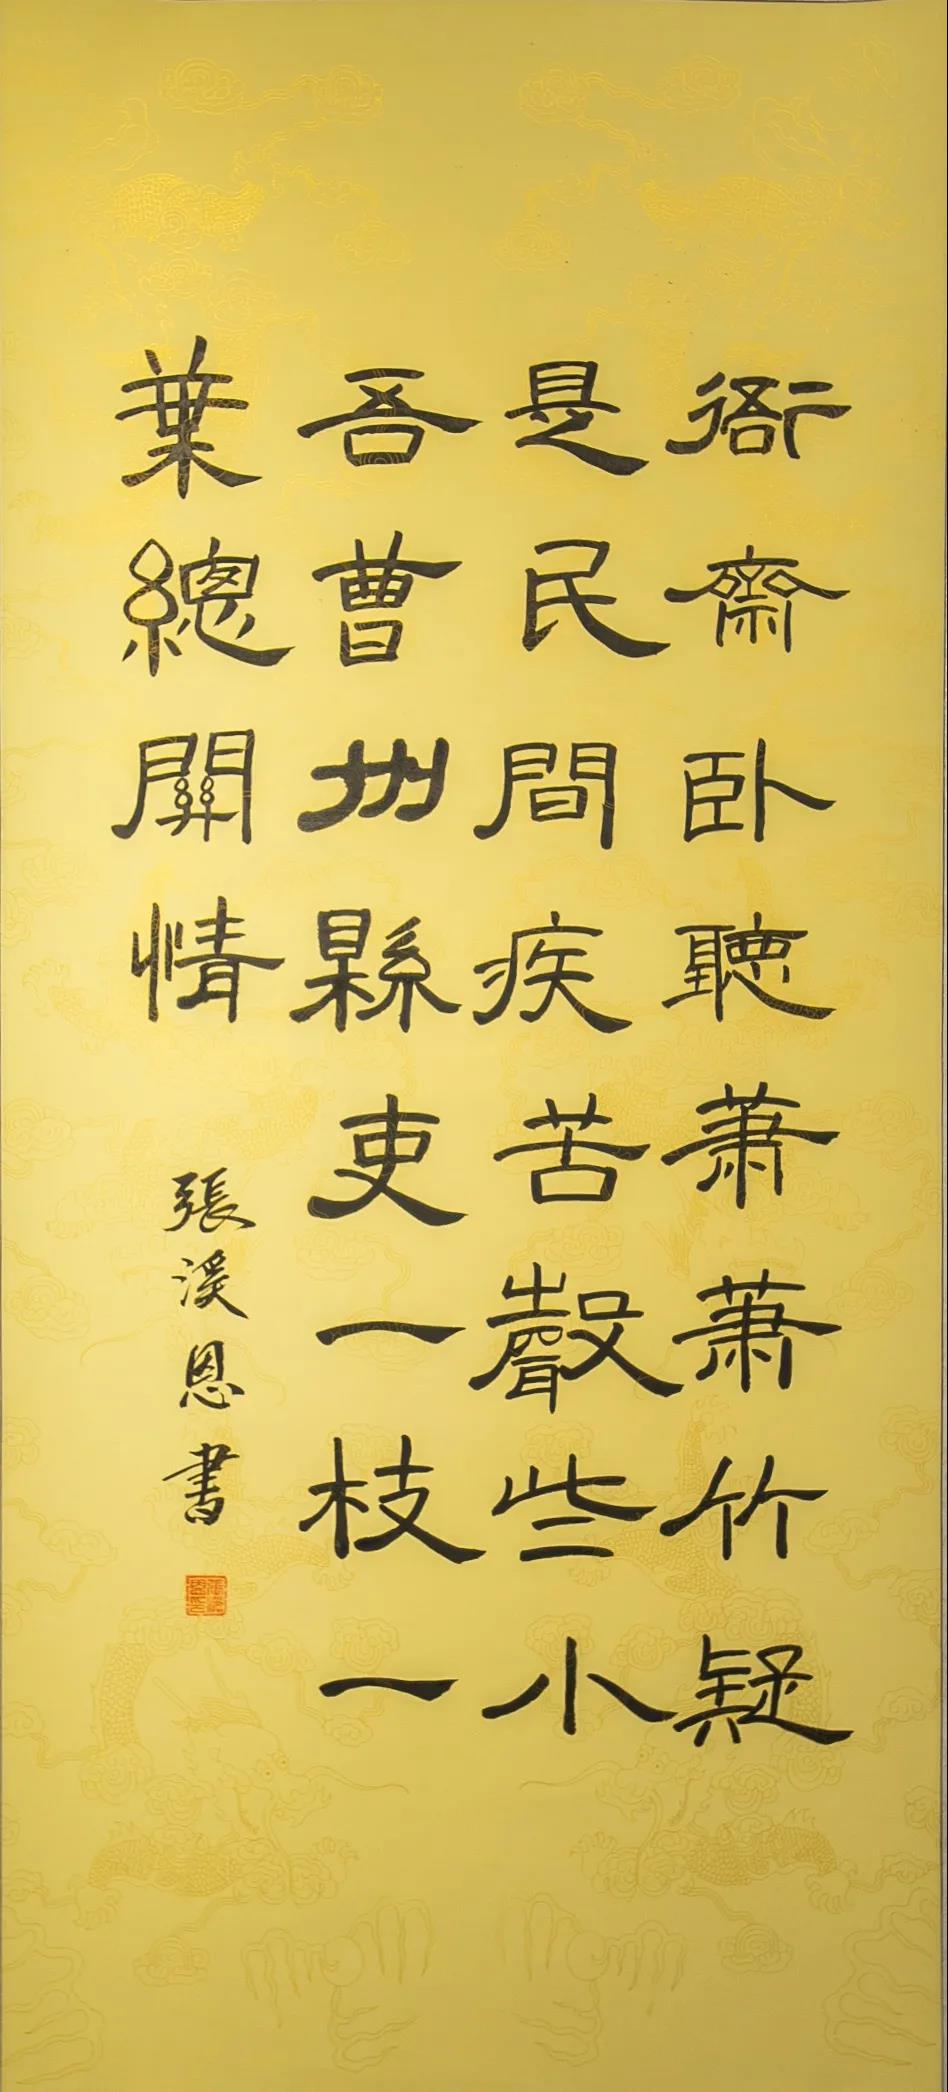 衙齋卧聽蕭蕭竹疑
是民間疾苦聲些小
吾曹州縣吏一枝一
葉總關情
張溪恩書